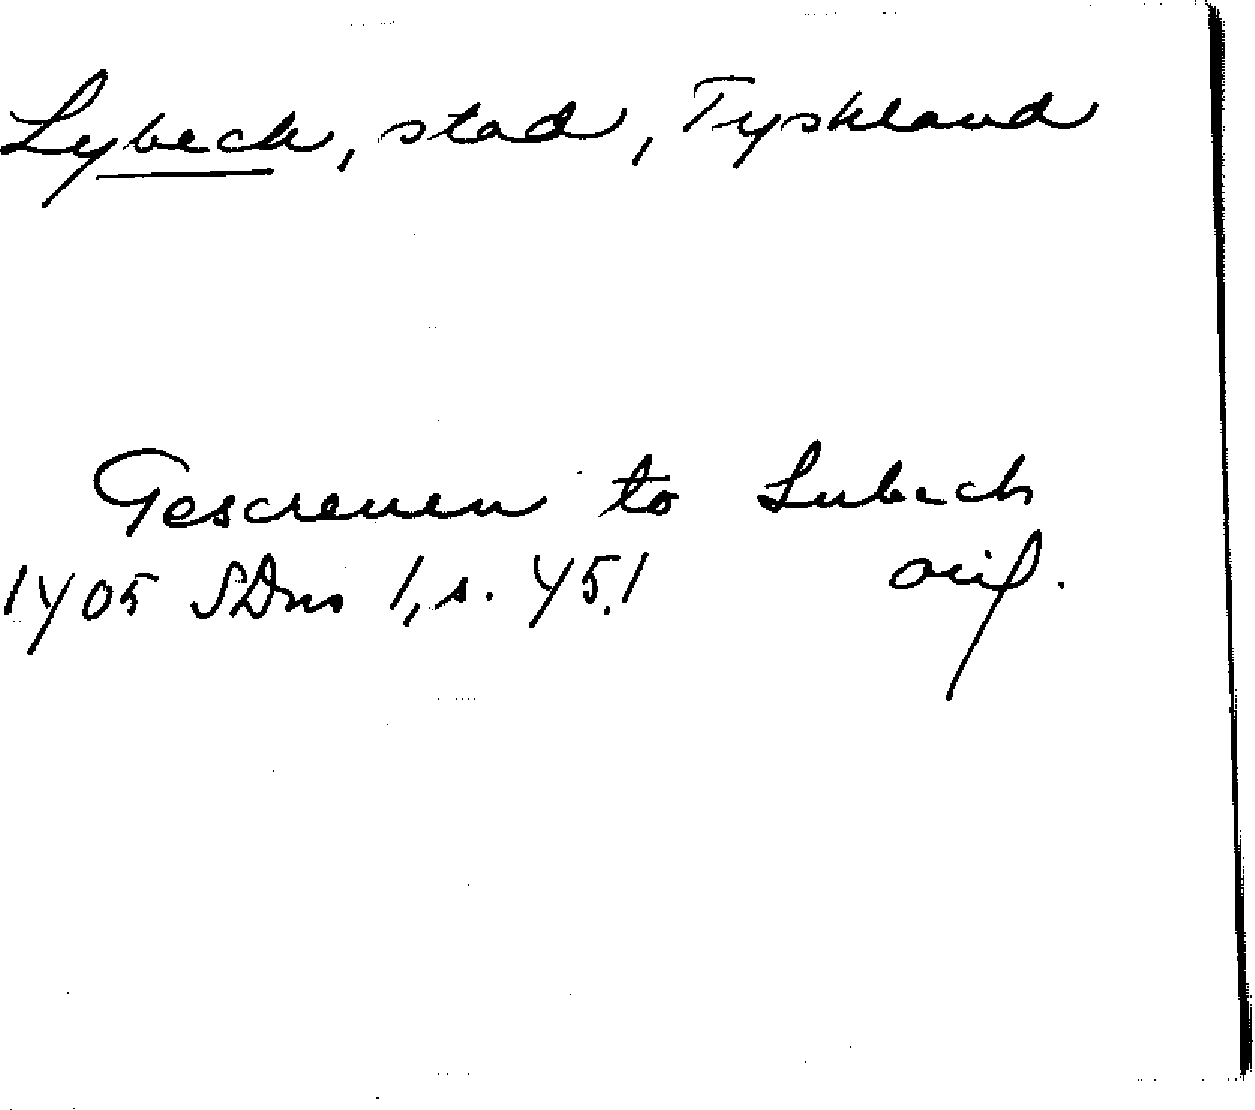 Lybeck, stad, Tyskland
Gescreuen to Lubech
1405 SDns 1, s. 451 orig.